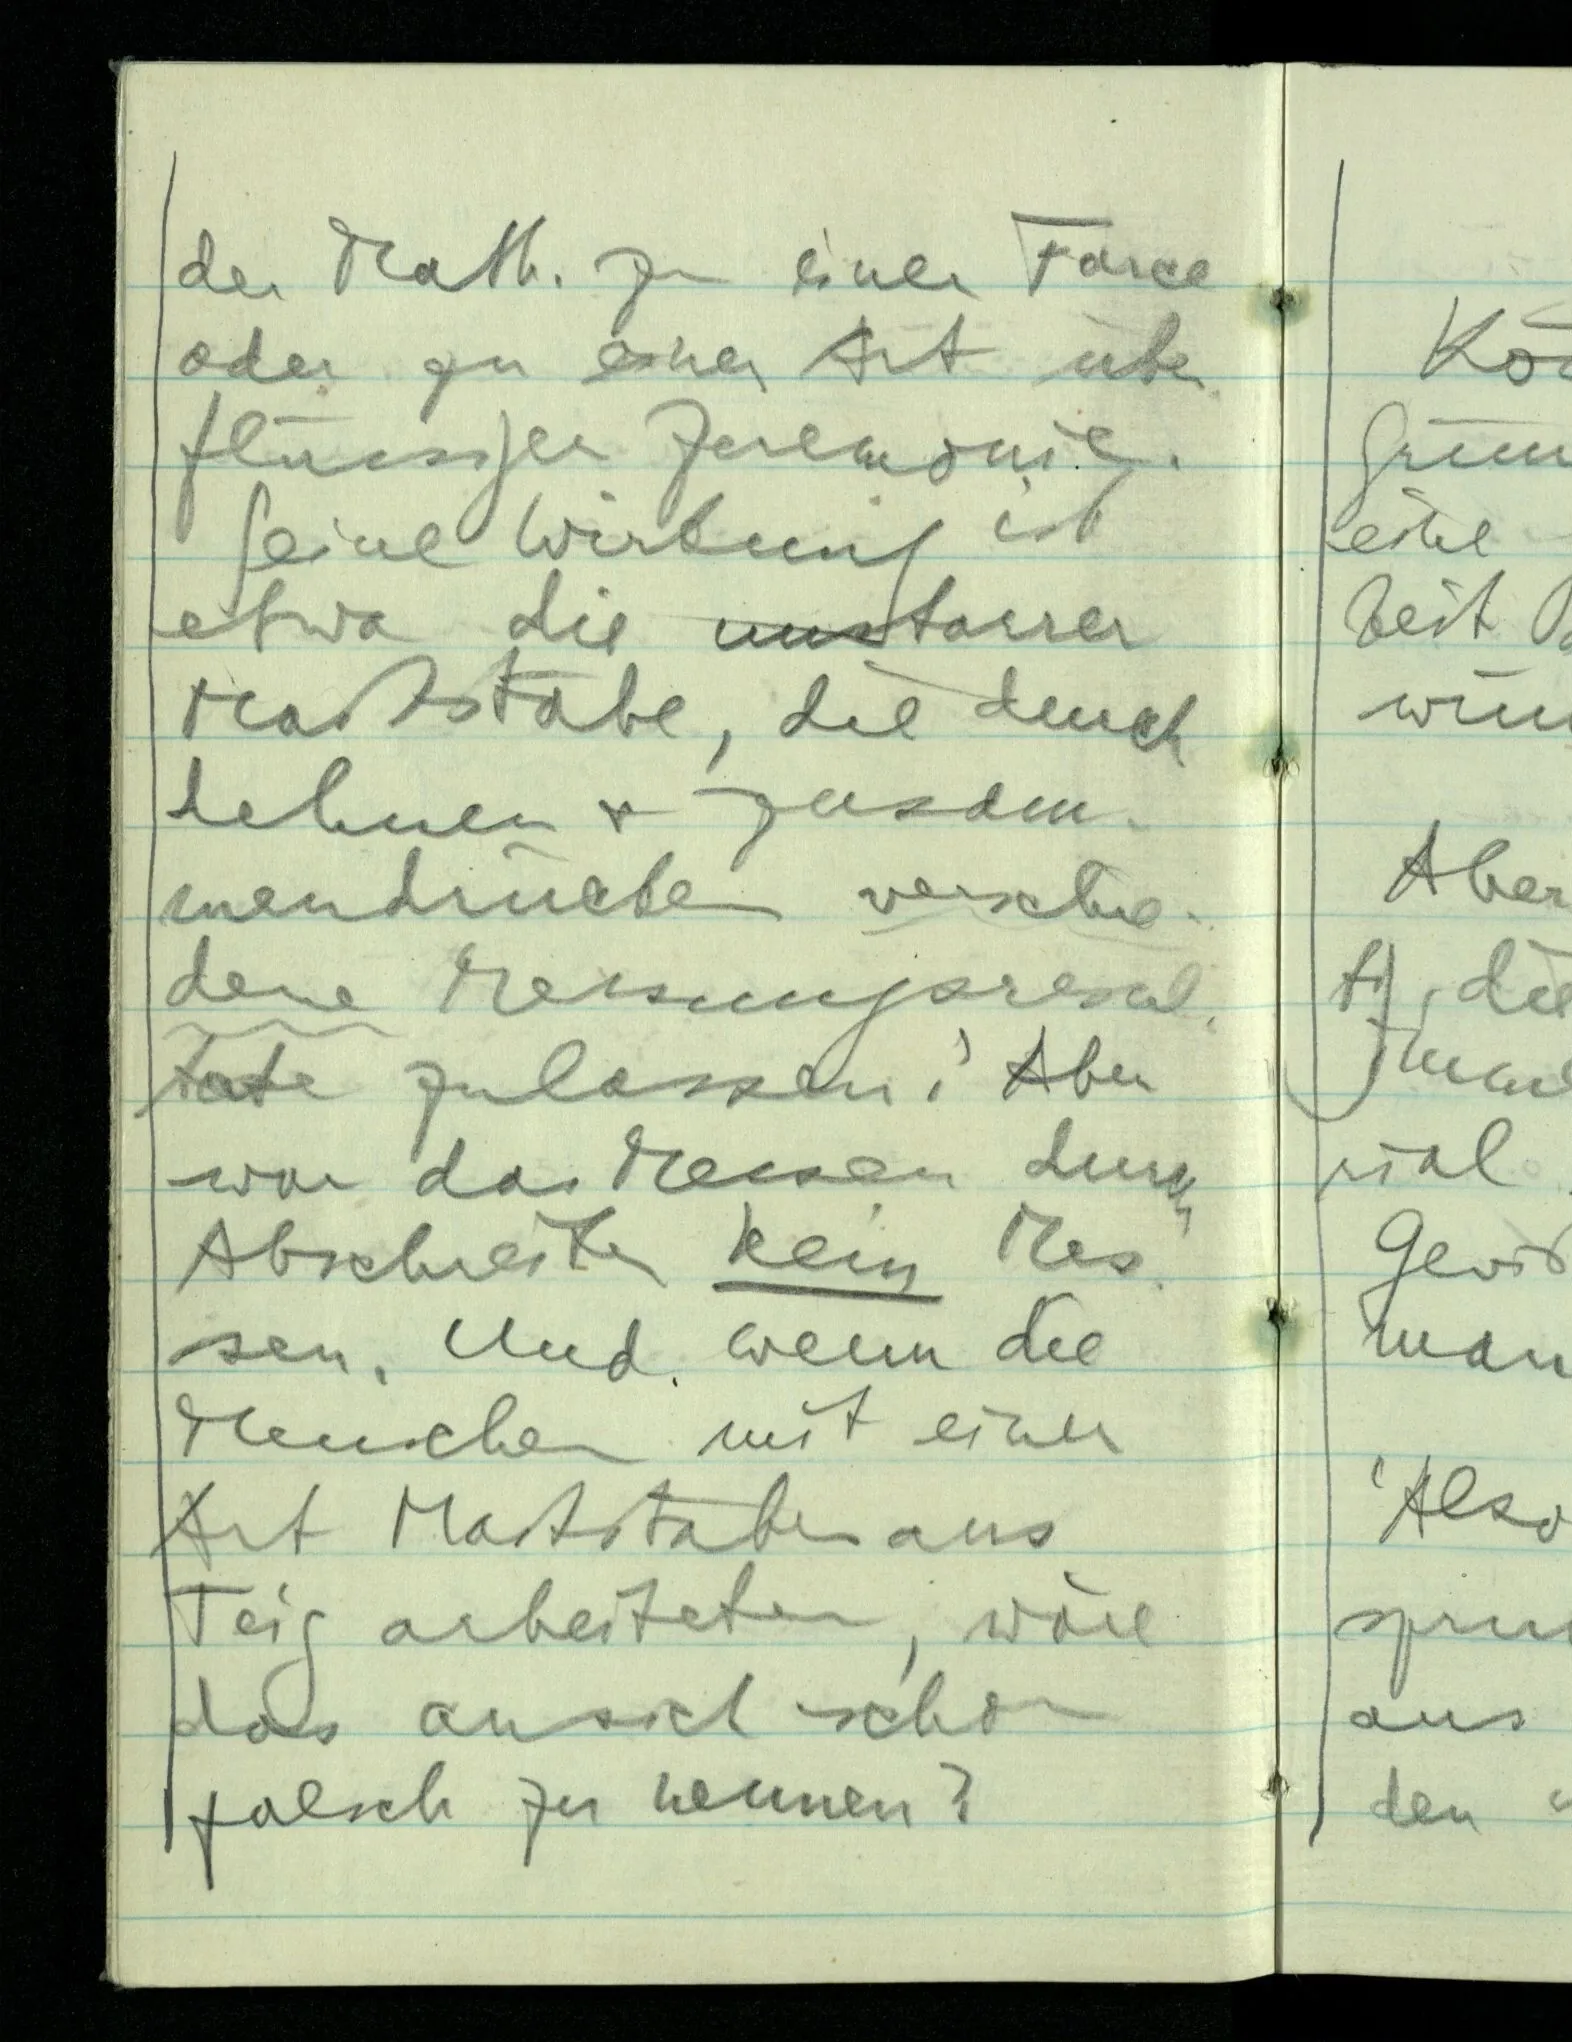 der Math. zu einer Farce
oder zu einer Art über
flüssiger Zeremonie.
Seine Wirkung ist
etwa die unstarrer
Maßstäbe, die durch
dehnen & zusam-
mendrücken verschie-
dene Messungsresul-
tate zulassen.' Aber
war das Messen durch
Abschreiten kein Mes-
sen. Und wenn die
Menschen mit einer
Art Maßstäben aus
Teig arbeiteten, wäre
das an sich schon
falsch zu nennen?
grün
eine
keit
wür
Aber
die
rial
Gewiß
man
'Also
spru
aus
den